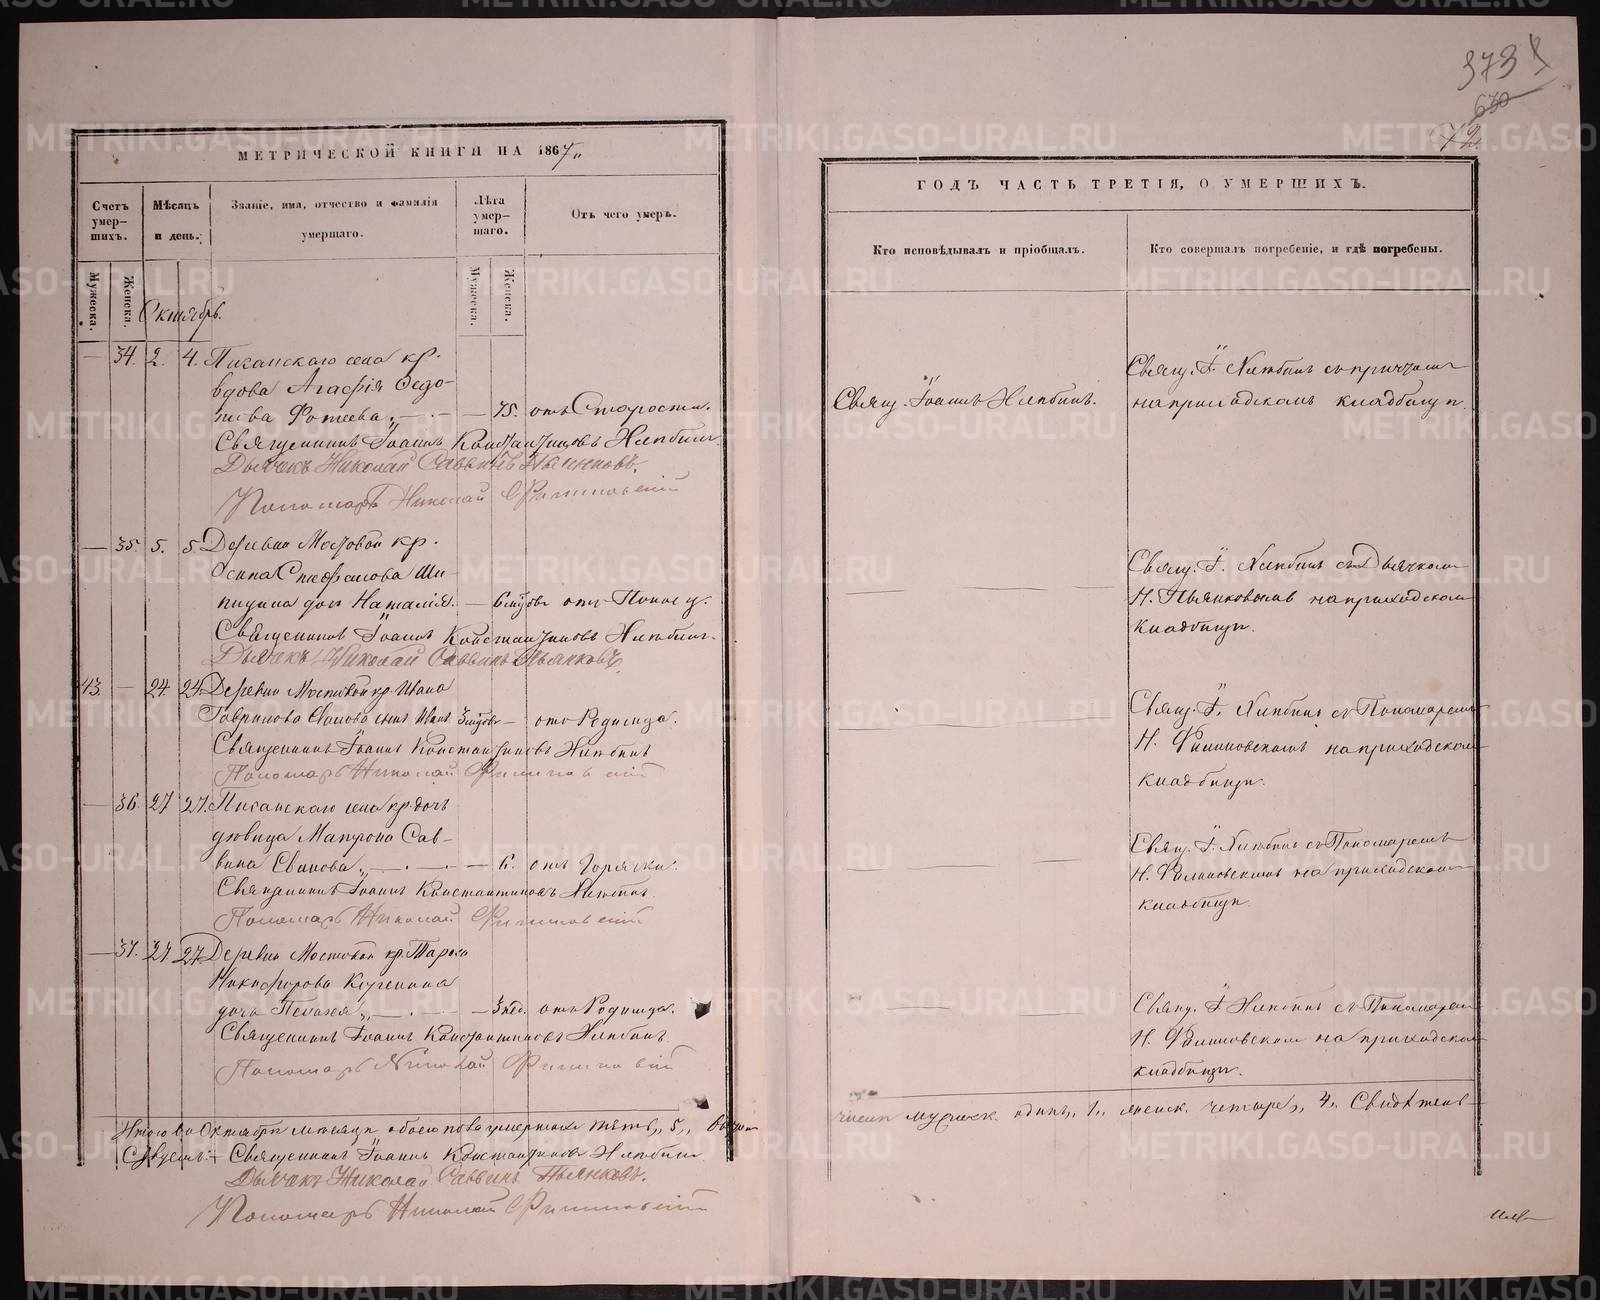 МЕТРИЧЕСКОЙ КНИГИ НА 1867
Счетъ умер-шихъ.
Мѣсяцъ и день.
Званіе, имя, отчество и фамилія умершаго.
Лѣта умер-шаго.
Отъ чего умеръ.
Мужеска.
Женска.
Мужеска.
Женска.
Октябрь.
— 34. 2. 4. Писанскаго села кр.
вдова Агафія Ѳедо-
това Фотеева — 75. отъ Старости.
Священникъ Іоаннъ Константиновъ Хлѣбинъ
Дьячекъ Николай Саввинъ Пьянковъ.
Пономарь Николай Филиновскій
— 35. 5. 5. Деревни Мостовой кр.
Осипа Стефанова Ши-
пицина дочь Наталія. — 6 мѣ. отъ Поносу.
Священникъ Іоаннъ Константиновъ Хлѣбинъ.
Дьячекъ Николай Саввинъ Пьянковъ
43. — 24. 24. Деревни Мостовой кр. Ивана
Гаврилова сынъ Иванъ — отъ Родимца.
Священникъ Іоаннъ Константиновъ Хлѣбинъ
Пономарь Николай Филиновскій
— 36. 27 27. Писанскаго села кр. дочь
дѣвица Матрона Сав-
вина — 6. отъ Горячки.
Священникъ Іоаннъ Константиновъ Хлѣбинъ.
Пономарь Николай Филиновскій
— 37. 27 27. Деревни Мостовой кр. Тараса
Никифорова
дочь Пелагея — 3 нед. отъ Родимца.
Священникъ Іоаннъ Константиновъ Хлѣбинъ.
Пономарь Николай Филиновскій
Итого въ Октябрѣ мѣсяцѣ обоего пола умершихъ пять, 5,
Священникъ Іоаннъ Константиновъ Хлѣбинъ
Дьячекъ Николай Саввинъ Пьянковъ.
Пономарь Николай Филиновскій
373
630
72.
ГОДЪ ЧАСТЬ ТРЕТІЯ, О УМЕРШИХЪ.
Кто исповѣдывалъ и пріобщалъ.
Кто совершалъ погребеніе, и гдѣ погребены.
Свящ. Іоаннъ Хлѣбинъ.
Свящ. І. Хлѣбинъ съ причтомъ
на приходскомъ кладбищѣ.
Свящ. І. Хлѣбинъ съ Дьячкомъ
Н. Пьянковымъ на приходскомъ
кладбищѣ.
Свящ. І. Хлѣбинъ съ Пономаремъ
Н. Филиновскимъ на приходскомъ
кладбищѣ.
Свящ. І. Хлѣбинъ съ Пономаремъ
Н. Филиновскимъ на приходскомъ
кладбищѣ.
Свящ. І. Хлѣбинъ съ Пономаремъ
Н. Филиновскимъ на приходскомъ
кладбищѣ.
числѣ мужеск. одинъ, 1, женск. четыре, 4, Свидѣтель-
METRIKI.GASO-URAL.RU